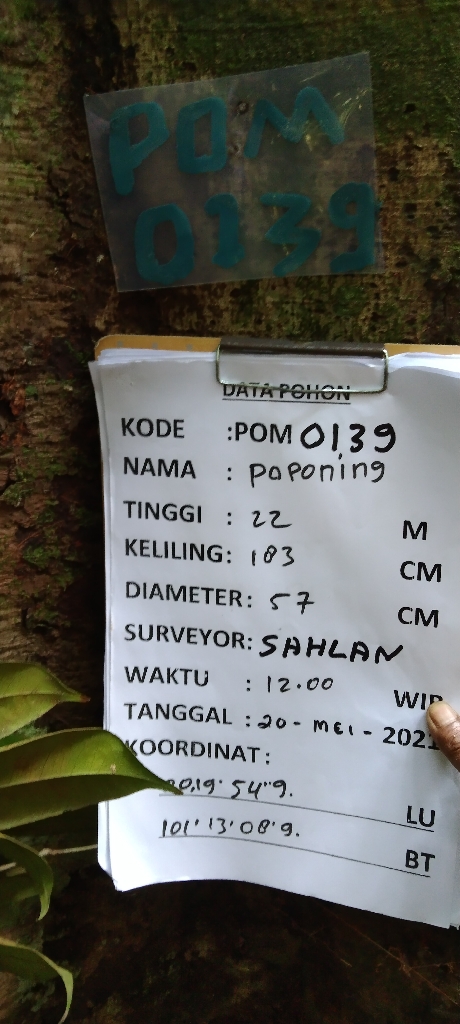 POM
0139
DATA POHON
KODE :POM 0139
NAMA : paponing
TINGGI : 22 M
KELILING: 183 CM
DIAMETER: 57 CM
SURVEYOR: SAHLAN
WAKTU : 12.00 WIB
TANGGAL : 20 - MEI - 2021
KOORDINAT:
19' 54"9. LU
101' 13' 08'9. BT